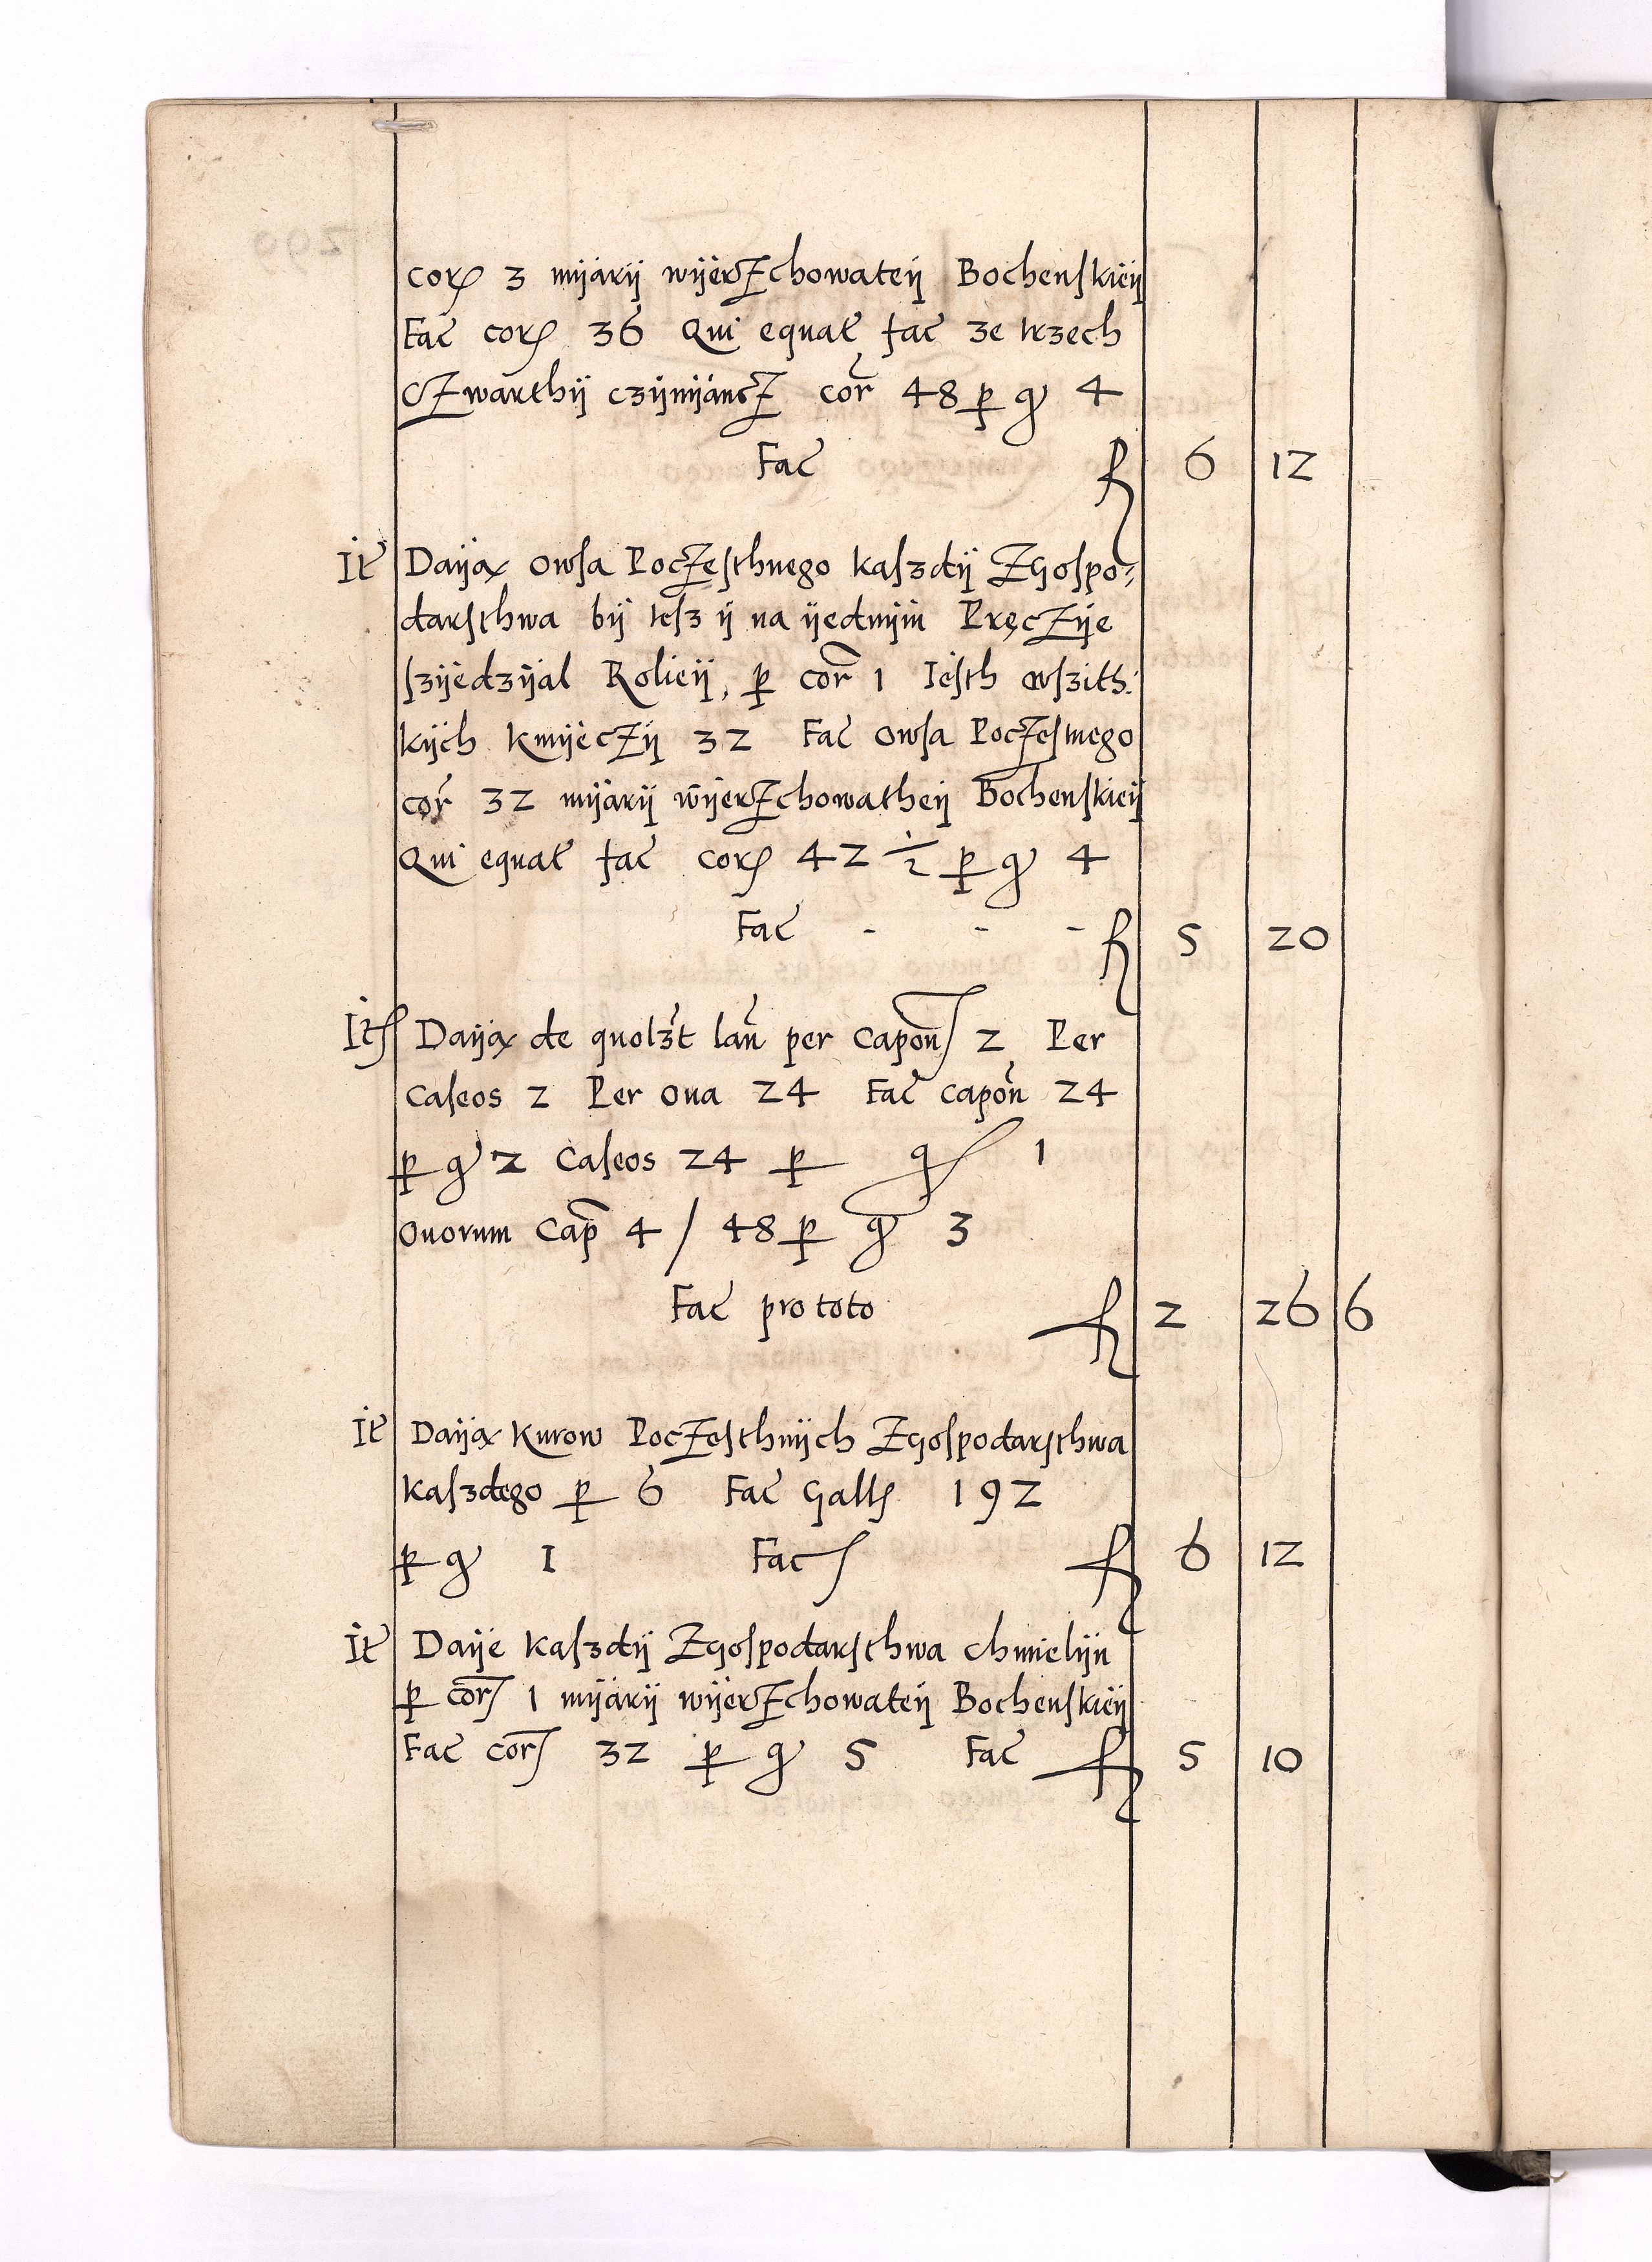 Corꝭ 3 mÿarÿ wÿerZchowateÿ Bochenſkieÿ
Fac̃ corꝭ 36 Qui equat̃ fac̃ ze trzech
cZwarthÿ czÿnÿancZ cor̃ 48 ꝑ gͬ 4
Fac̃ fl 6 12
It̃ Daÿą Owſa PocZeſthnego kaſzdÿ ZGoſpo⸗
darſthwa bÿ teſz ÿ na ÿednÿm PręcZÿe
ſzÿedzÿal Rolieÿ, ꝑ cor̃ 1 Ieſth wſzith⸗
kÿch KmÿecZÿ 32 Fac̃ Owſa PocZeſtnego
cor̃ 32 mÿarÿ wÿerZchowatheÿ Bochenſkieÿ
Qui equat̃ fac̃ corꝭ 42 ½ ꝑ gͬ 4
Fac̃ - - - fl 5 20
Itꝭ Daÿą de quolzt̃ lañ per Capoñ 2 Per
Caſeos 2 Per Oua 24 Fac̃ Capoñ 24
ꝑ gͬ 2 Caſeos 24 ꝑ gͬ 1
Ouorum Cap̃ 4 / 48 ꝑ gͬ 3
Fac̃ pro toto fl 2 26 6
It̃ Daÿą Kurow PocZeſthnÿch ZGoſpodarſthwa
Kaſzdego ꝑ 6 Fac̃ Gallꝭ 192
ꝑ gͬ I Facꝭ fl 6 12
It̃ Daÿe Kaſzdÿ ZGoſpodarſthwa Chmielÿu
ꝑ cor̃ 1 mÿarÿ wÿerZchowateÿ Bochenſkieÿ
Fac̃ cor̃ 32 ꝑ gͬ 5 Fac̃ fl 5 10